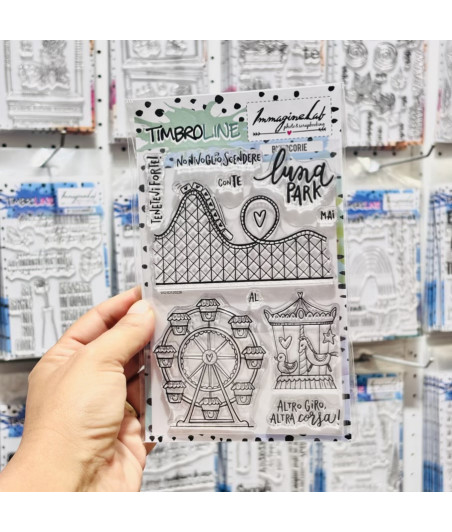 TIMBROLINE
ImmagineLab
photo & scrapbooking
TENETEVI FORTE!
NON VOGLIO SCENDERE
CON TE
luna
PARK
MAI
AL
ALTRO GIRO,
ALTRA corsa!